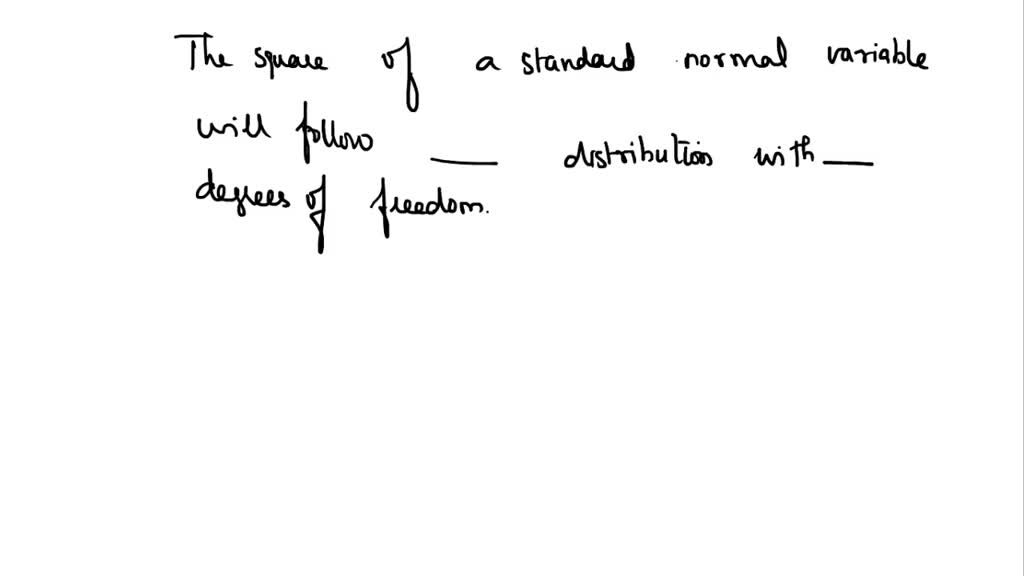 The square of a standard normal variable
will follow ____ distribution with ____
degrees of freedom.